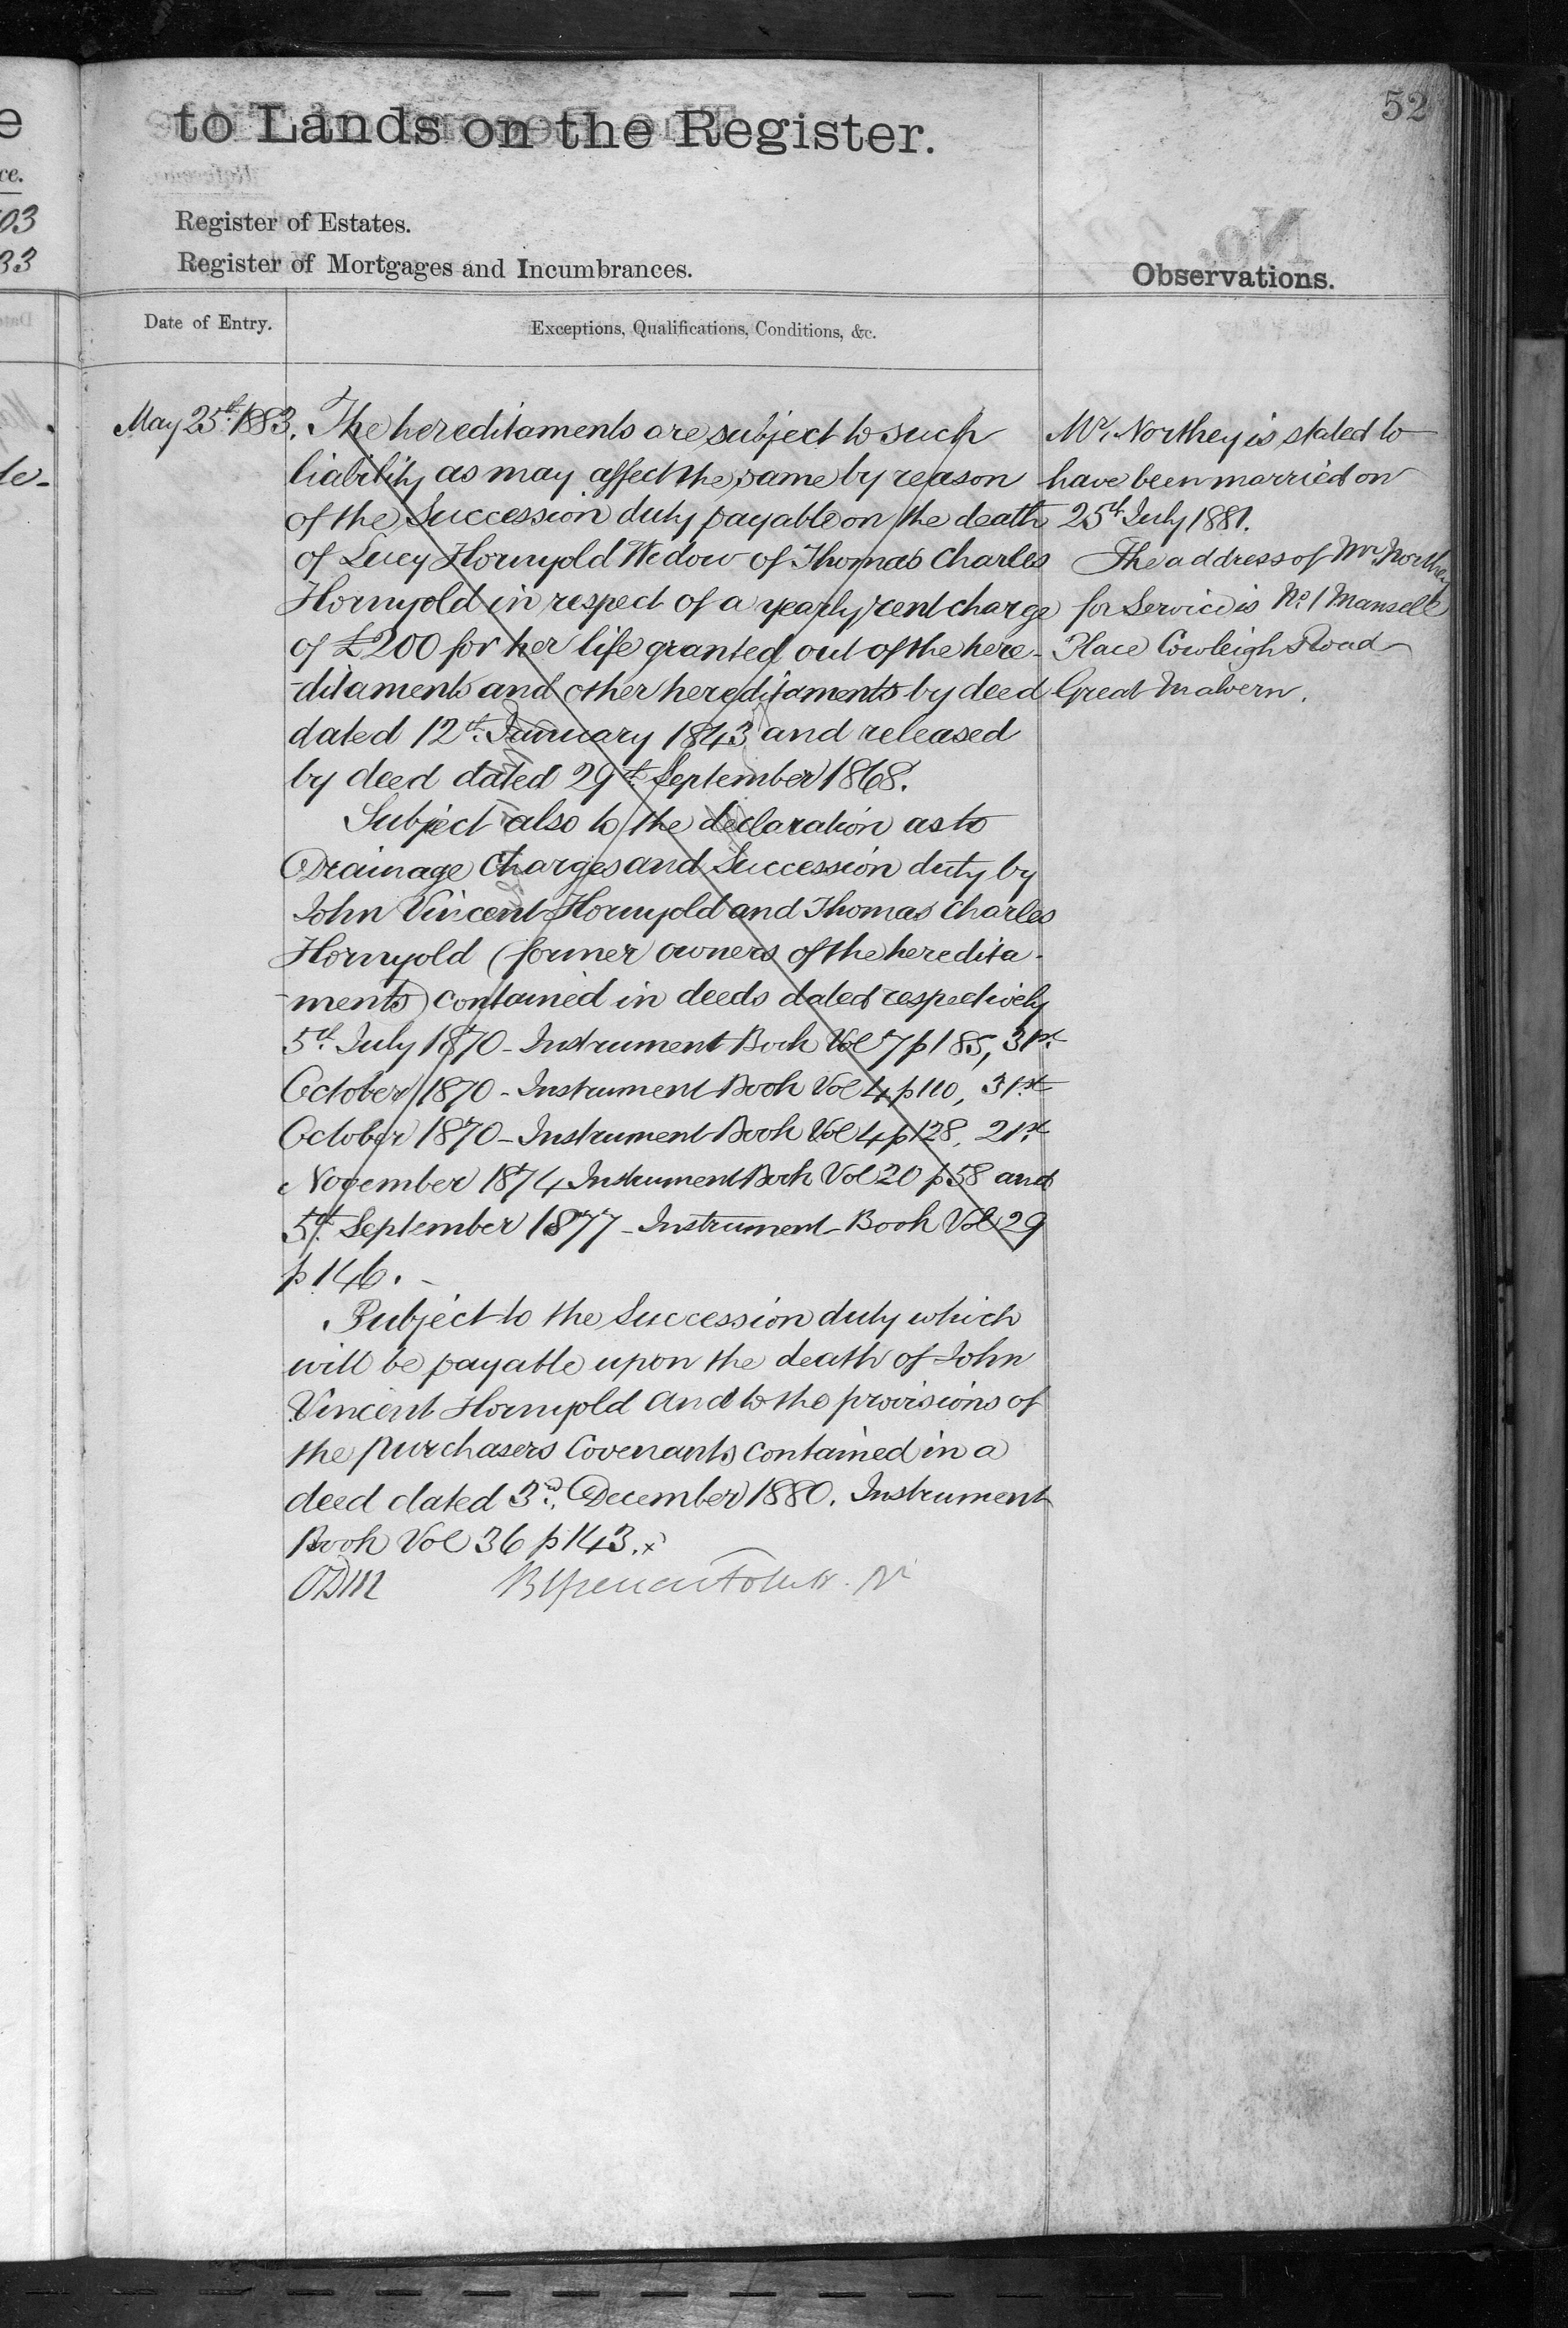 52
to Lands on the Register.
Register of Estates.
Register of Mortgages and Incumbrances.
Observations.
Date of Entry.
Exceptions, Qualifications, Conditions, &c.
May 25th 1883.
The hereditaments are subject to such
liability as may affect the same by reason
of the Succession duty payable on the death
of Lucy Hornyold Widow of Thomas Charles
Hornyold in respect of a yearly rent charge
of £200 for her life granted out of the here-
-ditaments and other hereditaments by deed
dated 12th January 1843 and released
by deed dated 29th September 1868.
Subject also to the declaration as to
Drainage Charges and Succession duty by
John Vincent Hornyold and Thomas Charles
Hornyold (former owners of the heredita-
-ments) contained in deeds dated respectively
5th July 1870 - Instrument Book Vol 7 p 185, 31st
October 1870 - Instrument Book Vol 4 p 110, 31st
October 1870 - Instrument Book Vol 4 p 128, 21st
November 1874 Instrument Book Vol 20 p 58 and
5th September 1877 - Instrument Book Vol 29
p 146. -
Subject to the Succession duty which
will be payable upon the death of John
Vincent Hornyold and to the provisions of
the purchasers Covenants contained in a
deed dated 3rd December 1880. Instrument
Book Vol 36 p 143. x
ODM
Mr. Northey is stated to
have been married on
25th July 1881.
The address of Mr Northey
for Service is No. 1 Mansell
Place Cowleigh Road
Great Malvern.
e
ce.
03
33
le-